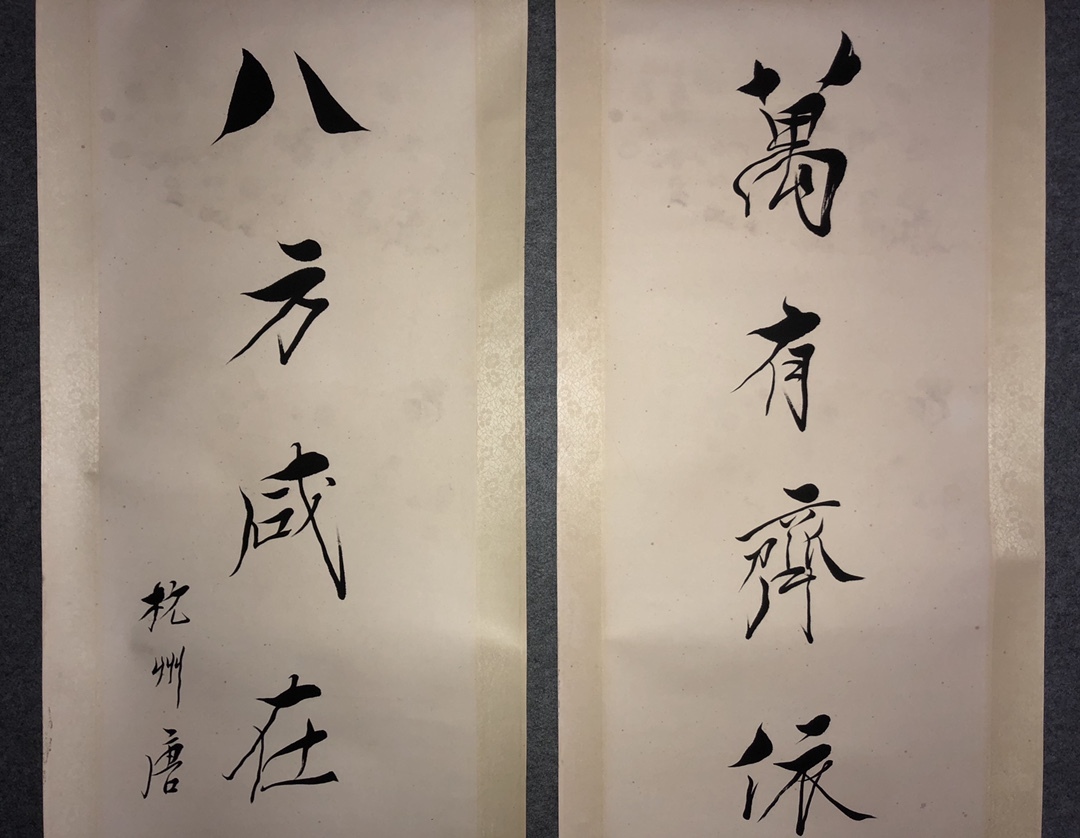 萬有齊依
八方咸在
杭州唐